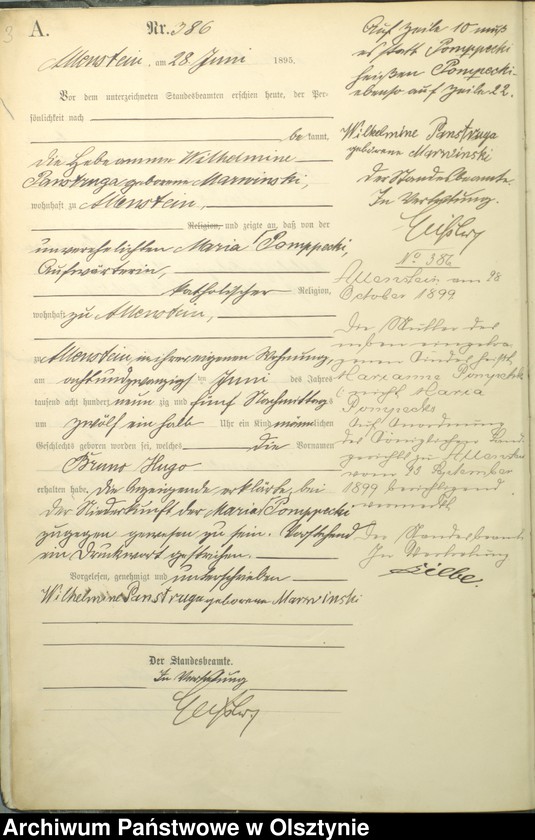 3
A.
Nr. 386
Allenstein, am 28. Juni 1895.
Vor dem unterzeichneten Standesbeamten erschien heute, der Per-
sönlichkeit nach
be kannt,
die Hebeamme Wilhelmine
Panstruga geborene Marwinski,
wohnhaft zu Allenstein,
Religion, und zeigte an, daß von der
unverehelichten Maria Pomppecki,
Aufwärterin,
katholischer Religion,
wohnhaft zu Allenstein,
zu Allenstein, in ihrer eigenen Wohnung,
am achtundzwanzigsten Juni des Jahres
tausend acht hundert neun zig und fünf Nachmittags
um zwölf ein halb Uhr ein Kind männlichen
Geschlechts geboren worden sei, welches die Vornamen
Bruno Hugo
erhalten habe. Die Anzeigende erklärte, bei
der Niederkunft der Maria Pomppecki
zugegen gewesen zu sein. Vorstehend
ein Druckwort gestrichen.
Vorgelesen, genehmigt und unterschrieben
Wilhelmine Panstruga geborene Marwinski
Der Standesbeamte.
In Vertretung
Auf Zeile 10 muß
es statt Pomppecki
heißen Pompecki
ebenso auf Zeile 22.
Wilhelmine Panstruga
geborene Marwinski
Der Standesbeamte.
In Vertretung.
No. 386
Allenstein, am 28
October 1899
Die Mutter des
neben eingetra-
genen Kindes heißt
Marianne
nicht Maria
Pompecki
Auf Anordnung
des Königlichen Land-
gerichts zu Allenstein
vom 23 September
1899 berichtigend
vermerkt.
Der Standesbeamte
In Vertretung
Archiwum Państwowe w Olsztynie